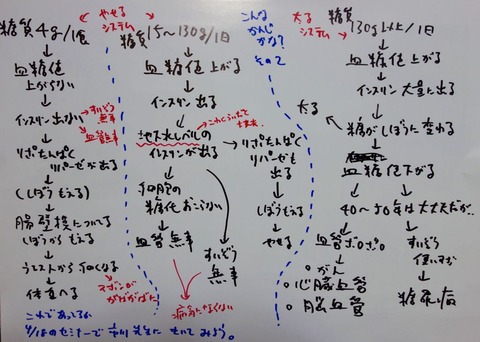 やせる
システム
糖質4g/1食
血糖値
上がらない
インスリン出ない
すいぞう
無事
血管無事
りぽたんぱく
リパーゼが出る
(しぼうもえる)
腸壁についてる
しぼうからもえる
ウエストから細くなる
ズボンが
がばがばに
体重へる
これであってるか
セミナーで
先生に
きいてみよう。
糖質15〜130g/1日
血糖値上がる
インスリン出る
インスリンが出る
細胞の
糖化おこらない
血管無事
すいぞう
無事
病気にならない
りぽたんぱく
リパーゼも
出る
しぼうもえる
やせる
こんな
かんじ
かな?
その2
太る
システム
糖質
130g以上/1日
血糖値上がる
インスリン大量に出る
糖がしぼうに変わる
太る
血糖値下がる
40〜50年は大丈夫だが…
血管ボロボロ
がん
心臓血管
脳血管
すいぞう
使いすぎ
糖尿病